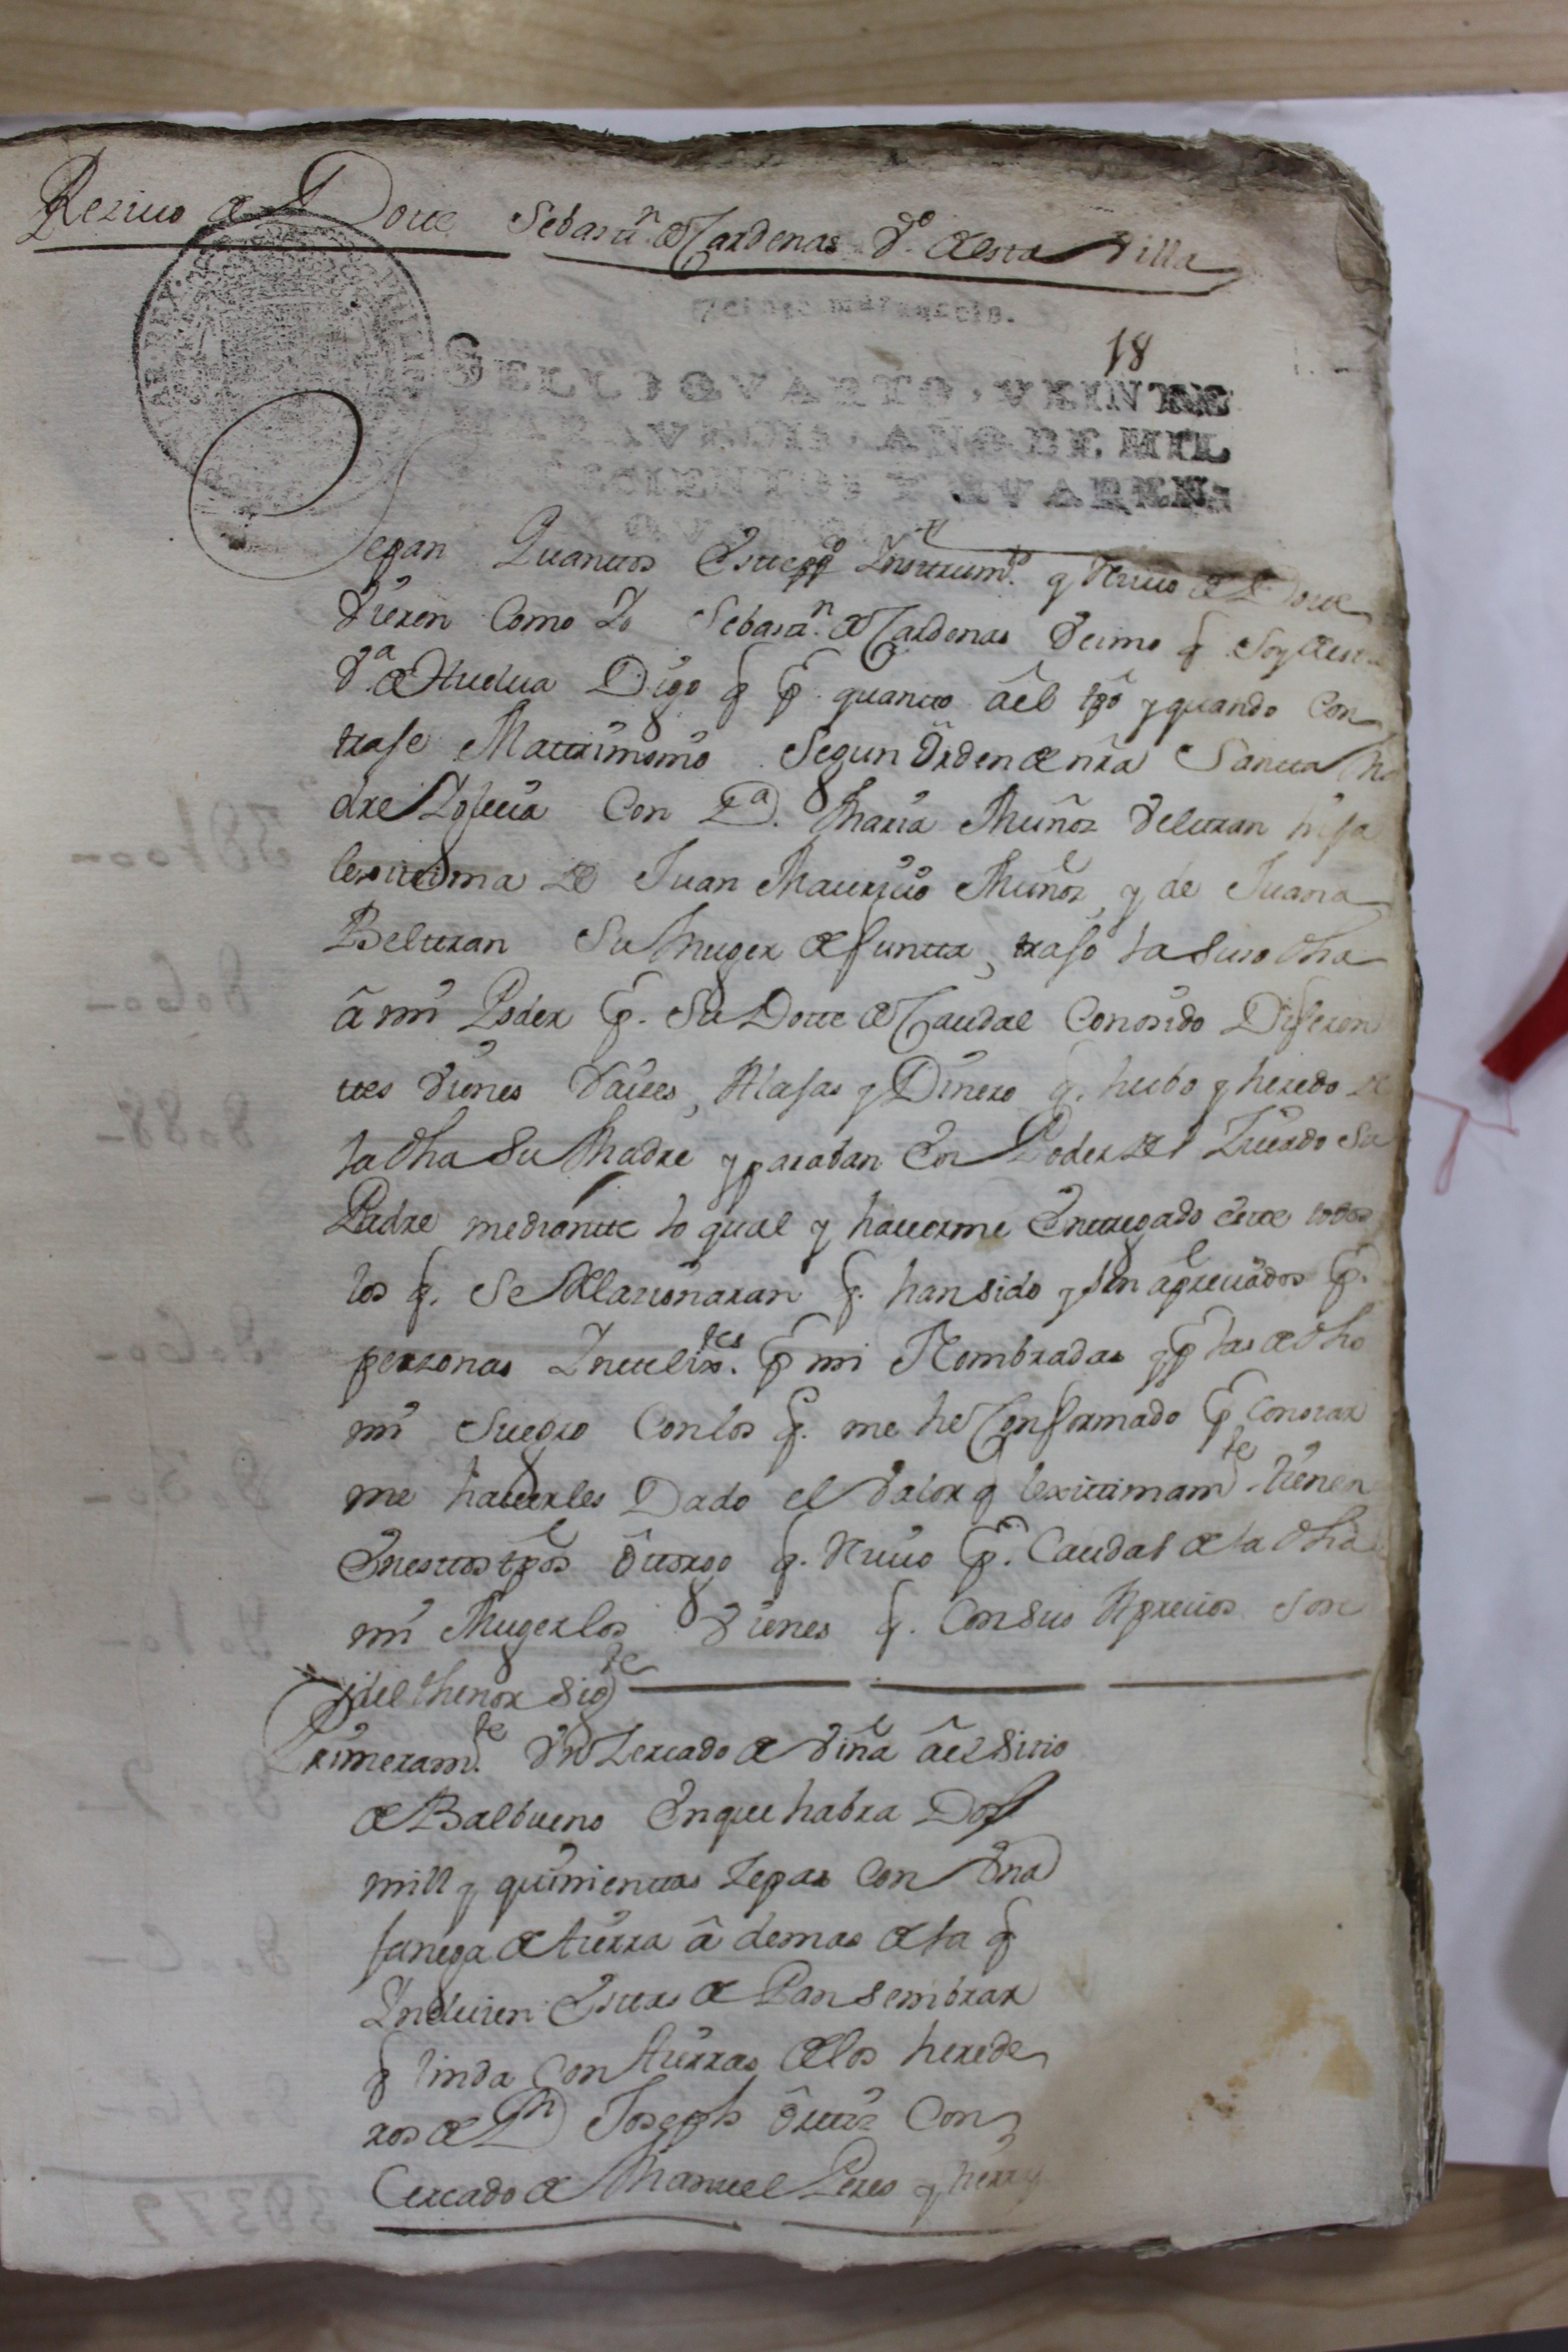 Reziuo de Dote Sebastn. de Cardenas Vo. de esta Villa
Veinte maravedis.
18
SELLO QVARTO, VEINTE
MARAVEDIS, AÑO DE MIL
SETECIENTOS Y QVAREN-
Sepan Quantos Este ppco Instrumto. q Reciuo de Dote
Vieren Como Yo Sebastn. de Cardenas Vecino q Soy de esta
Va. de Huelua Digo q p. quanto âel tpô y quando Con
trase Matrimonio Segun Orden de nrâ Santa Ma
dre Yglecia Con Da. Maria Muñoz Veltran hija
lexitima de Juan Mauricio Muñoz, y de Juana
Beltran Su Muger defunta, trajo la Suso dha
â mi Poder p. Su Dote de Caudal Conosido Diferen
tes Vienes Raices, Alajas y Dinero q. hubo y heredo de
la dha Su Madre y paraban En Poder del Zitado Su
Padre mediante lo qual y hauerme Entregado este todos
los q. Se Relacionaran q. han sido y son apreciados p.
personas Inteligtes. p mi Nombradas y p las de dho
mi Suegro Con los q. me he Conformado p Constar
me hauerles Dado el Valor q lexitimamte tienen
En estos tpôs Ôtorgo q. Reciuo p. Caudal de la dha
mi Muger los Vienes q. Con Sus Aprecios Son
del thenor Sigte
Primeramte. Vn Zercado de Viña âel Sitio
de Balbueno En que habra Dos
mill y quinientas Zepas Con Vna
fanega de tierra â demas de la q
Incluien Estas de Pan Sembrar
q linda Con tierras de los herede
ros de Dn Joseph Ôrtiz Con
Cercado de Manuel Peres y